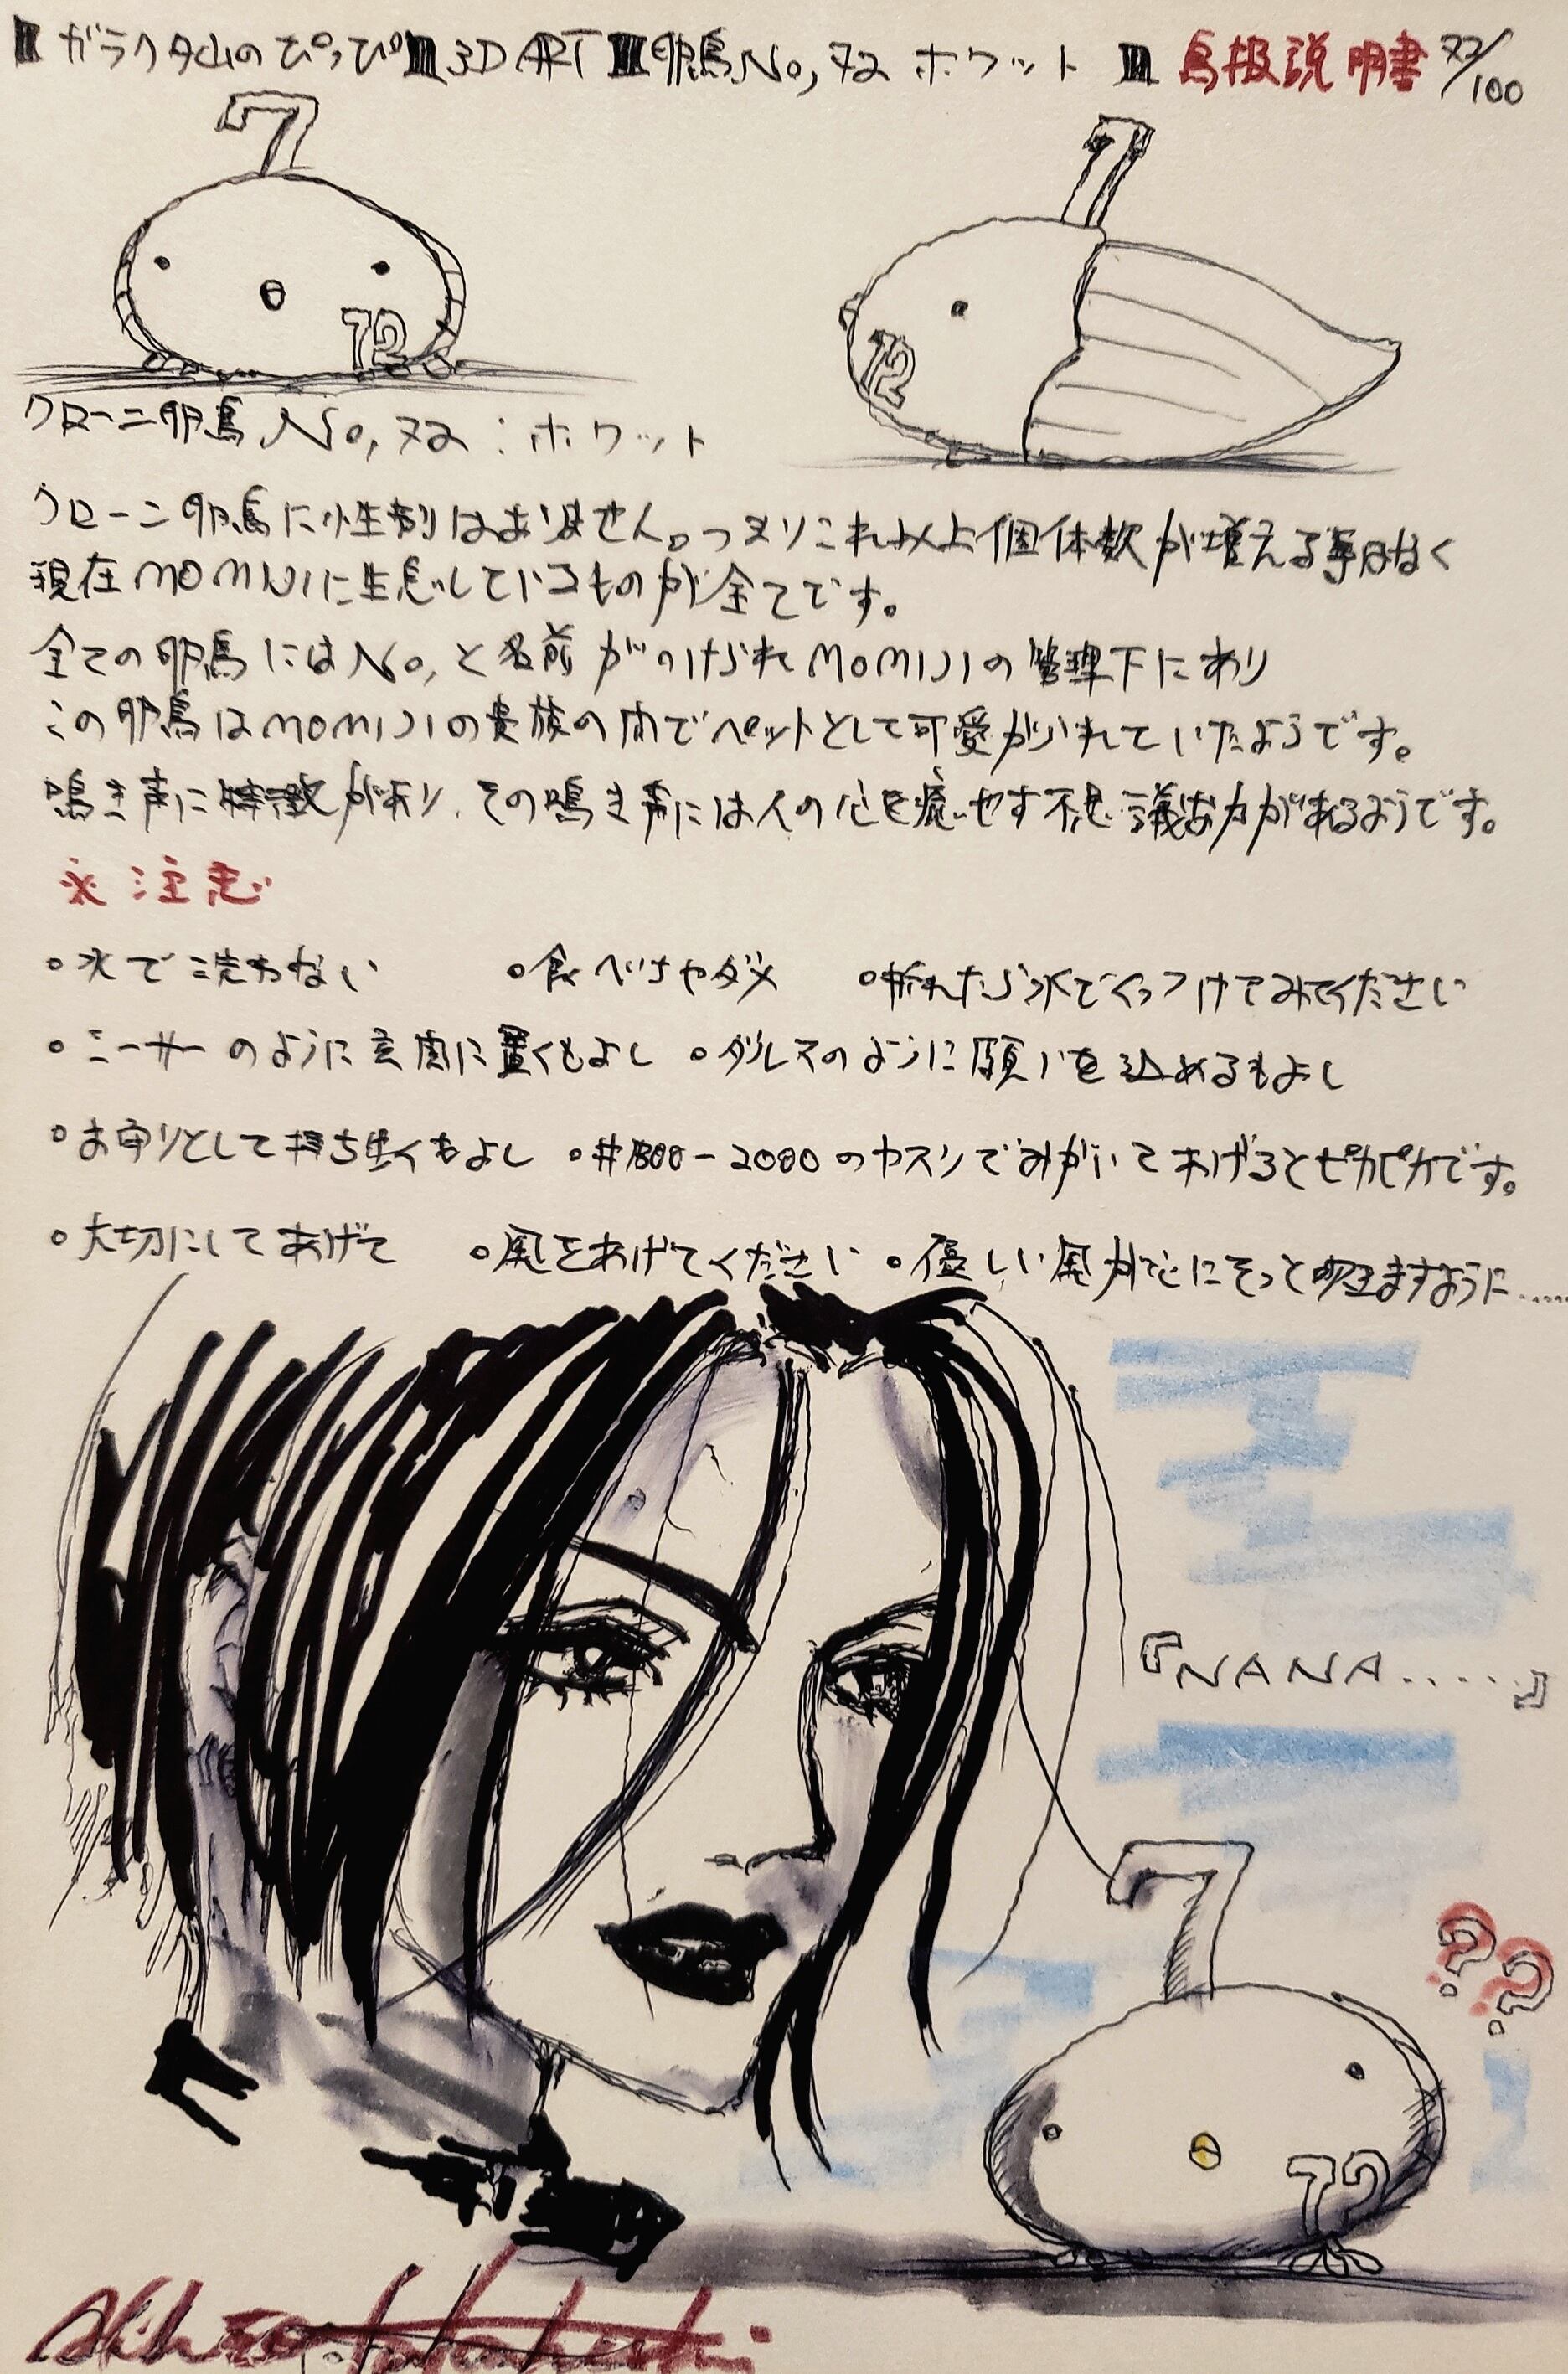 ガラクタ山のぴっぴ 3D ART 卵鳥 No,72 ホワット 鳥扱説明書 72/100
7
7
72
72
クローン卵鳥 No,72:ホワット
クローン卵鳥に性別はありません。つまりこれ以上個体数が増える事はなく
現在MOMIJIに生息しているものが全てです。
全ての卵鳥にはNo,と名前がつけられMOMIJIの管理下にあり
この卵鳥はMOMIJIの貴族の間でペットとして可愛がられていたようです。
鳴き声に特徴があり、その鳴き声には人の心を癒やす不思議な力があるようです。
※注意
◦水で洗わない ◦食べちゃダメ ◦折れたら水でくっつけてみてください
◦シーサーのように玄関に置くもよし ◦ダルマのように願いを込めるもよし
◦お守りとして持ち歩くもよし ◦#1800-2000のヤスリでみがいてあげるとピカピカです。
◦大切にしてあげて ◦風をあげてください ◦優しい風が心にそっと吹きますように……
『NANA.....』
7
??
72